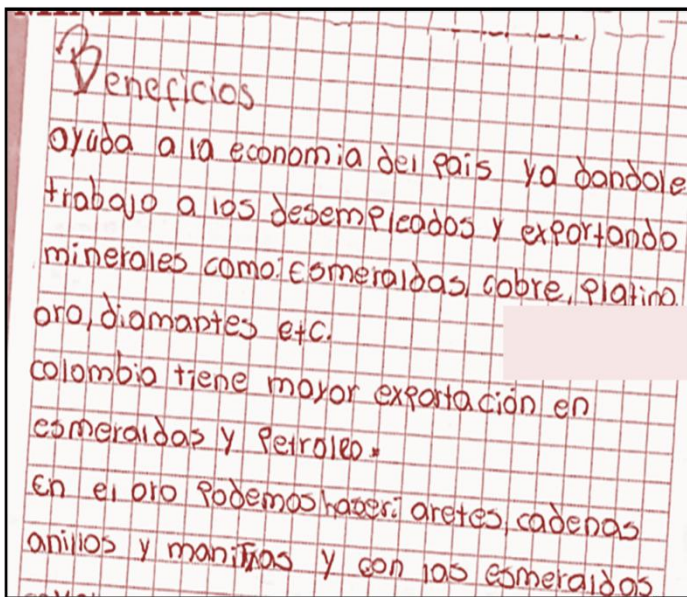 Beneficios
ayuda a la economia del pais ya dandole
trabajo a los desempleados y exportando
minerales como: esmeraldas, cobre, platino
oro, diamantes etc.
colombia tiene mayor exportación en
esmeraldas y Petroleo.
en el oro Podemos haser: aretes, cadenas
anillos y manillas y con las esmeraldas